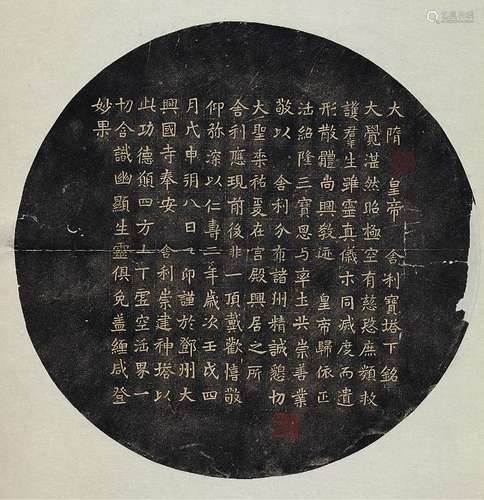 大隋 皇帝 舍利寶塔下銘
大覺湛然昭極空有慈愍庶類救
護羣生雖靈真儀示同滅度而遺
形散體尚興敎迹 皇帝歸依正
法紹隆三寶思与率土共崇善業
敬以 舍利分布諸州精誠懇切
大聖垂祐爰在宮殿興居之所
舍利應現前後非一頂戴歡憘敬
仰弥深以仁壽二年歲次壬戌四
月戊申朔八日乙卯謹於鄧州大
興國寺奉安 舍利崇建神塔以
此功德願四方上下虛空法界一
切含識幽顯生靈俱免蓋纏咸登
妙果